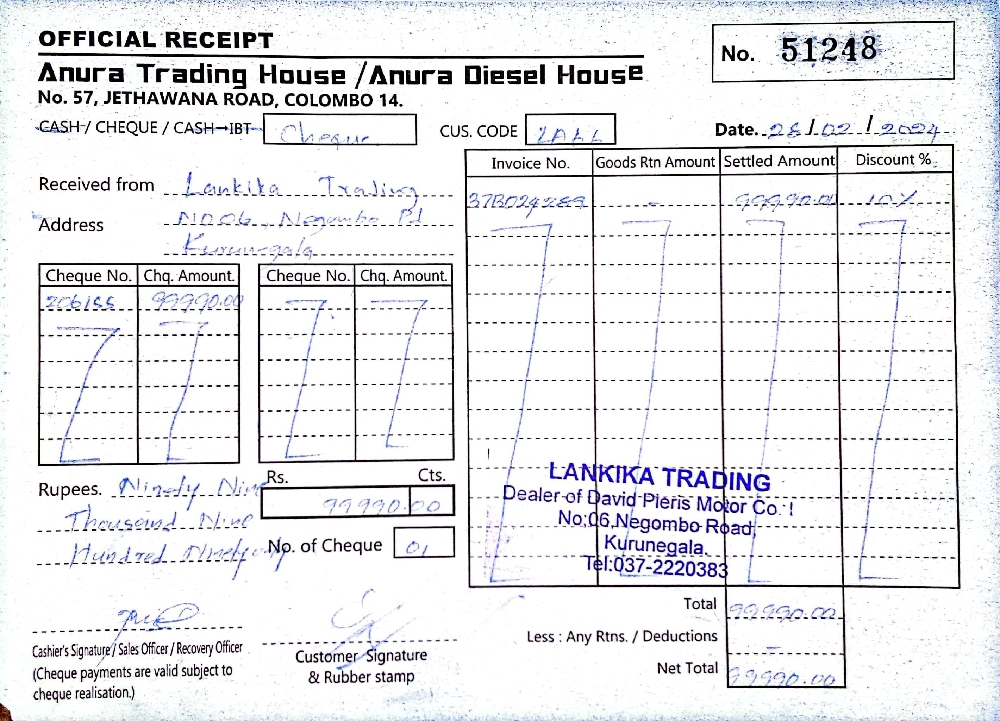 OFFICIAL RECEIPT
No. 51248
Anura Trading House /Anura Diesel House
No. 57, JETHAWANA ROAD, COLOMBO 14.
CASH / CHEQUE / CASH-IBT Cheque
CUS. CODE
Date. 28/02/2024
Received from Lankika Trading
Address No 06, Negombo Rd
Kurunegala
Invoice No. Goods Rtn Amount Settled Amount Discount %
37B024289 - 99990.00 10%
Cheque No. Chq. Amount. Cheque No. Chq. Amount.
206155 99990.00
Rupees. Ninety Nine
Thousand Nine
Hundred Ninety
Rs. Cts.
99990.00
No. of Cheque 01
LANKIKA TRADING
Dealer of David Pieris Motor Co. !
No;06,Negombo Road,
Kurunegala.
Tel:037-2220383
Total 99990.00
Less : Any Rtns. / Deductions -
Net Total 99990.00
Cashier's Signature / Sales Officer / Recovery Officer
(Cheque payments are valid subject to
cheque realisation.)
Customer Signature
& Rubber stamp